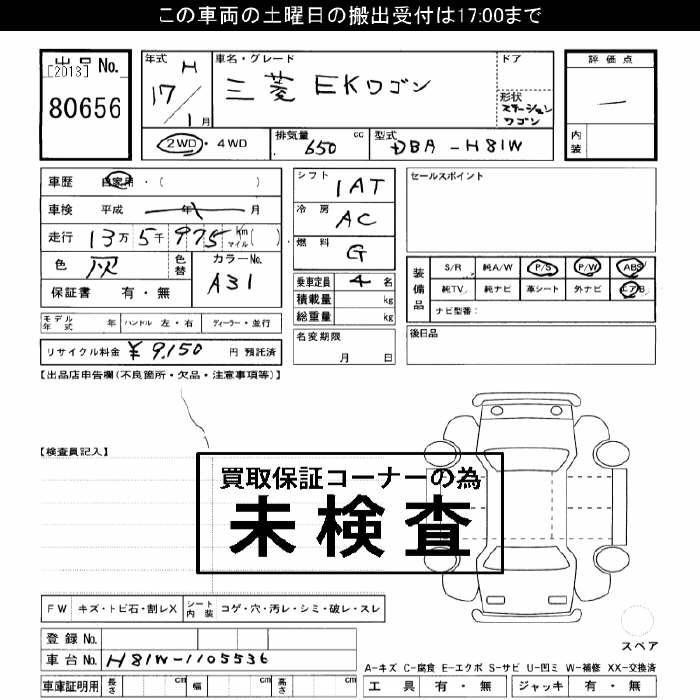 この車両の土曜日の搬出受付は17:00まで
出品 No.
[2013]
80656
年式 H
17/1月
車名・グレード
三菱 EKワゴン
ドア
形状
ステーション
ワゴン
2WD・4WD
排気量 650 cc
型式 DBA-H81W
評価点
—
内装
車歴 自家用・( )
車検 平成 年 月
走行 13万5千975 km マイル( )
色 灰
色替
カラーNo. A31
保証書 有・無
モデル年式 年 ハンドル 左・右 ディーラー・並行
リサイクル料金 ¥9,150 円 預託済
シフト 1AT
冷房 AC
燃料 G
乗車定員 4 名
積載量 kg
総重量 kg
名変期限
月 日
セールスポイント
装備品
S/R 純A/W P/S P/W ABS
純TV 純ナビ 革シート 外ナビ エアB
ナビ型番:
後日品
【出品店申告欄(不良箇所・欠品・注意事項等)】
【検査員記入】
買取保証コーナーの為
未検査
FW キズ・トビ石・割レX シート内装 コゲ・穴・汚レ・シミ・破レ・スレ
スペア
登録 No.
車台 No. H81W-1105536
車庫証明用 長さ cm 幅 cm 高さ cm
A-キズ C-腐食 E-エクボ S-サビ U-凹ミ W-補修 XX-交換済
工具 有・無 ジャッキ 有・無